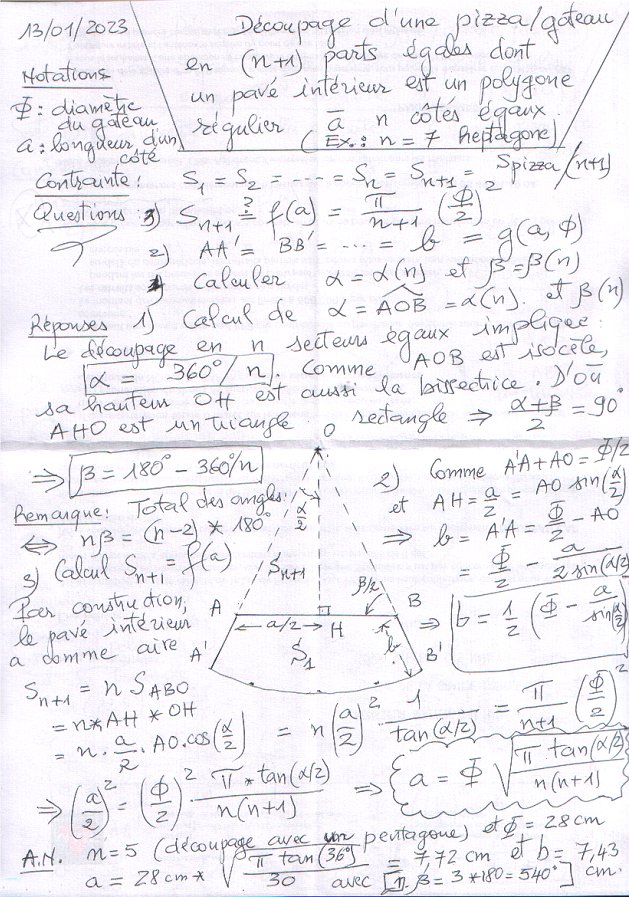 13/01/2023
Découpage d'une pizza/gâteau
en (n+1) parts égales dont
un pavé intérieur est un polygone
régulier à n côtés égaux.
(Ex.: n = 7 heptagone)
Notations
Φ : diamètre
du gâteau
a : longueur d'un
côté
Contrainte : S₁ = S₂ = ---- = Sn = Sn+1 = Spizza/(n+1)
Questions : 3) Sn+1 ≟ f(a) = π/(n+1) (Φ/2)²
2) AA' = BB' = ... = b = g(a, Φ)
1) Calculer α = α(n) et β = β(n)
Réponses 1) Calcul de α = AOB = α(n). et β(n)
Le découpage en n secteurs égaux implique :
α = 360°/n. Comme AOB est isocèle,
sa hauteur OH est aussi la bissectrice. D'où
AHO est un triangle rectangle ⇒ (α+β)/2 = 90°
⇒ β = 180° - 360°/n
Remarque : Total des angles :
⇔ nβ = (n-2) * 180°
3) Calcul Sn+1 = f(a)
Par construction,
le pavé intérieur
a comme aire
O
α/2
Sn+1
β/2
A
B
a/2
H
b
A'
S₁
B'
2) Comme A'A + AO = Φ/2
et AH = a/2 = AO sin(α/2)
⇒ b = A'A = Φ/2 - AO
= Φ/2 - a/(2 sin(α/2))
⇒ b = 1/2 (Φ - a/sin(α/2))
Sn+1 = n SABO
= n * AH * OH
= n · a/2 · AO · cos(α/2) = n (a/2)² · 1/tan(α/2) = π/(n+1) (Φ/2)²
⇒ (a/2)² = (Φ/2)² · π * tan(α/2)/(n(n+1)) ⇒ a = Φ √(π tan(α/2)/(n(n+1)))
A.N. n = 5 (découpage avec un pentagone) et Φ = 28 cm
a = 28 cm * √(π tan(36°)/30) = 7,72 cm et b = 7,43 cm.
avec [n β = 3 * 180 = 540°]